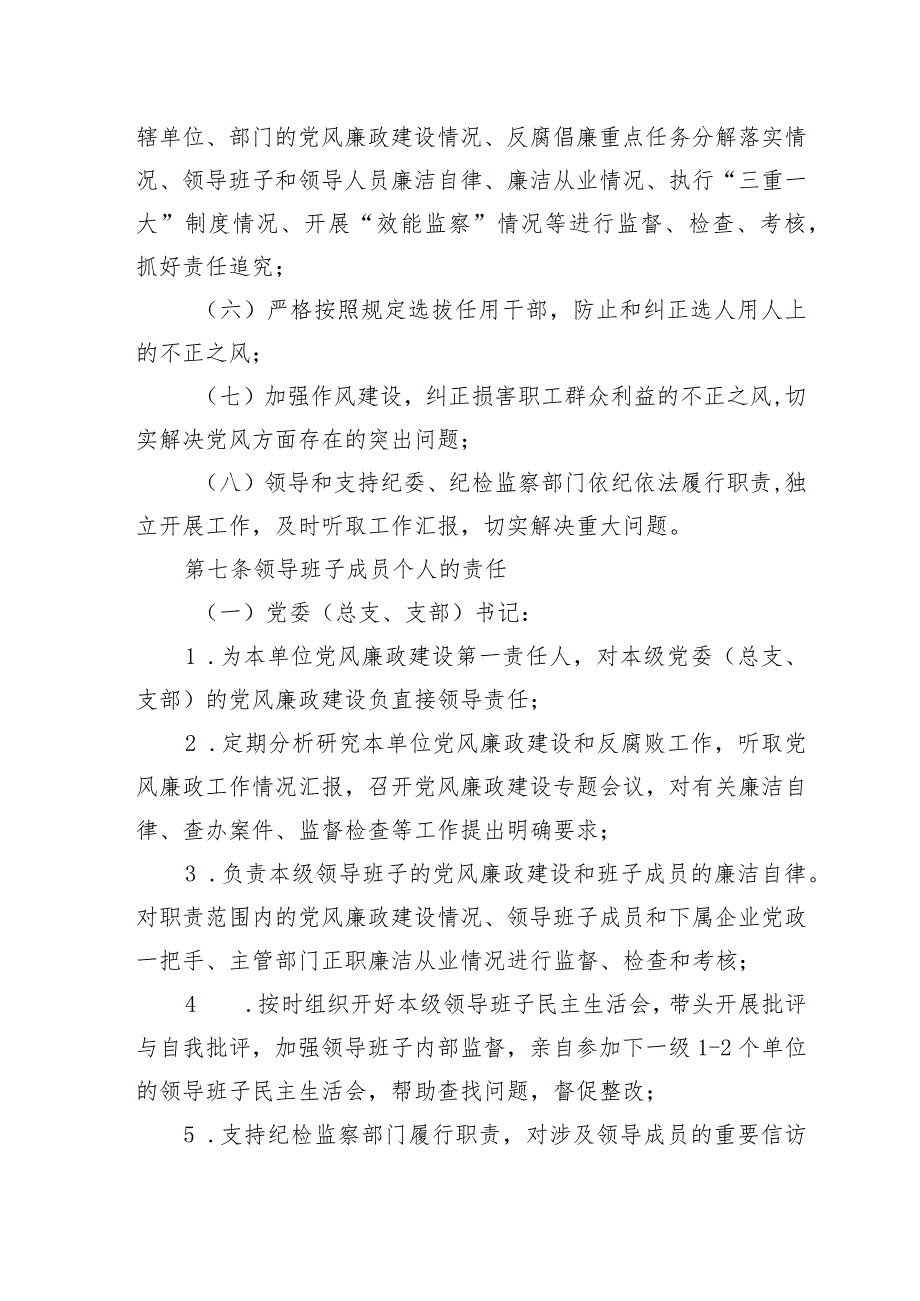 辖单位、部门的党风廉政建设情况、反腐倡廉重点任务分解落实情
况、领导班子和领导人员廉洁自律、廉洁从业情况、执行“三重一
大”制度情况、开展“效能监察”情况等进行监督、检查、考核，
抓好责任追究；
（六）严格按照规定选拔任用干部，防止和纠正选人用人上
的不正之风；
（七）加强作风建设，纠正损害职工群众利益的不正之风,切
实解决党风方面存在的突出问题；
（八）领导和支持纪委、纪检监察部门依纪依法履行职责,独
立开展工作，及时听取工作汇报，切实解决重大问题。
第七条领导班子成员个人的责任
（一）党委（总支、支部）书记：
1 .为本单位党风廉政建设第一责任人，对本级党委（总支、
支部）的党风廉政建设负直接领导责任；
2 .定期分析研究本单位党风廉政建设和反腐败工作，听取党
风廉政工作情况汇报，召开党风廉政建设专题会议，对有关廉洁自
律、查办案件、监督检查等工作提出明确要求；
3 .负责本级领导班子的党风廉政建设和班子成员的廉洁自律。
对职责范围内的党风廉政建设情况、领导班子成员和下属企业党政
一把手、主管部门正职廉洁从业情况进行监督、检查和考核；
4 .按时组织开好本级领导班子民主生活会，带头开展批评
与自我批评，加强领导班子内部监督，亲自参加下一级1-2个单位
的领导班子民主生活会，帮助查找问题，督促整改；
5 .支持纪检监察部门履行职责，对涉及领导成员的重要信访